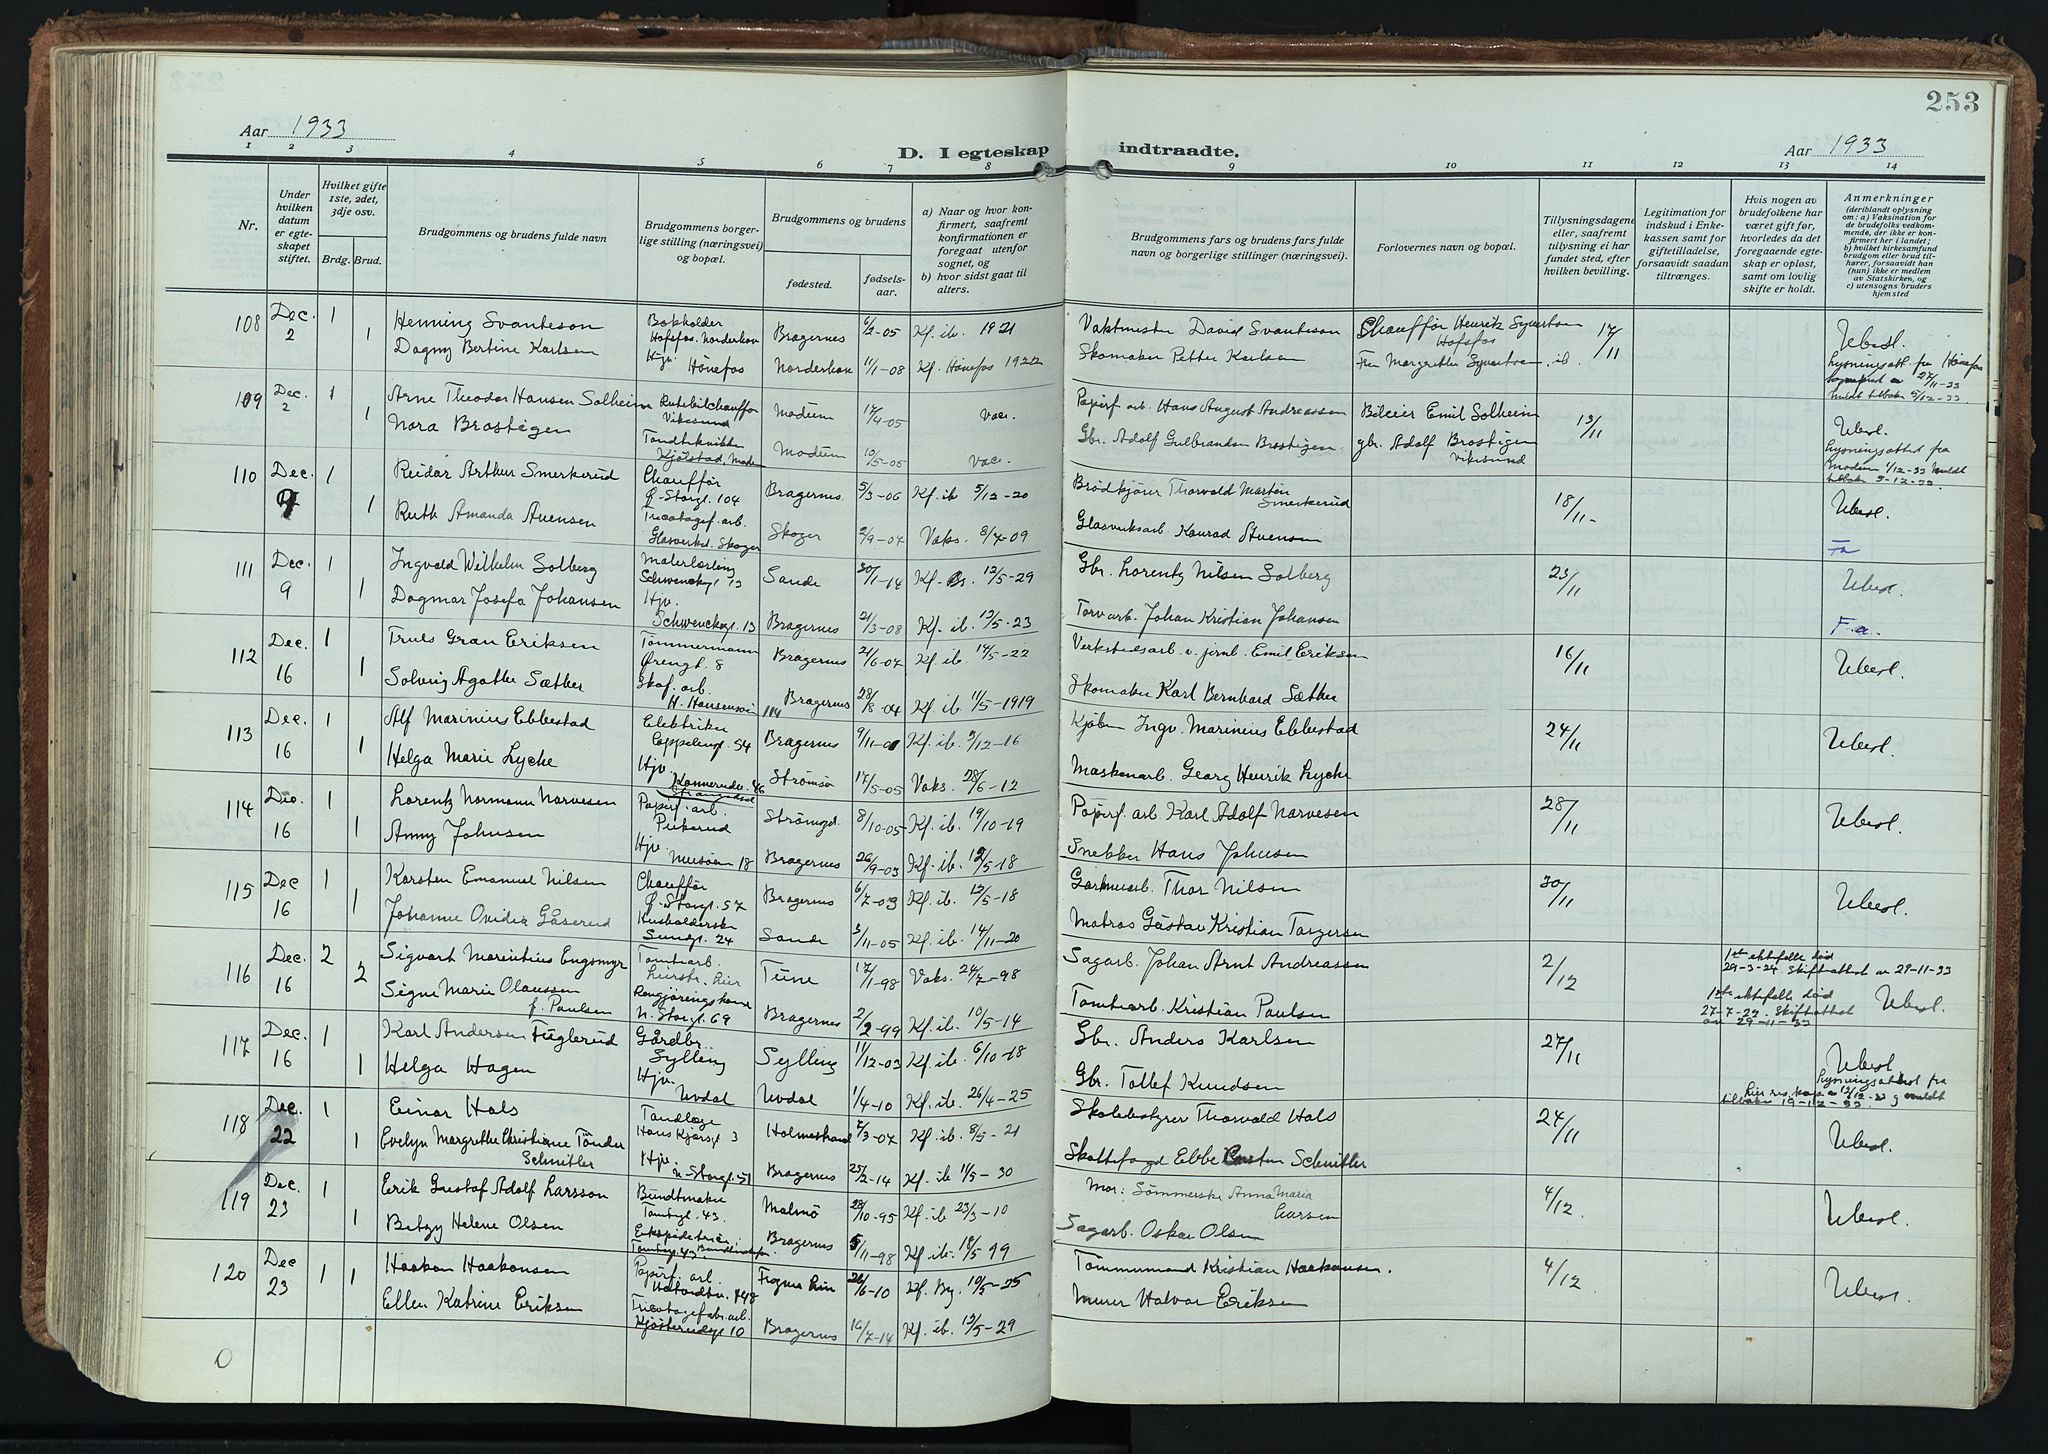 253
Aar 1933
D. I egteskap indtraadte.
Aar 1933
1 2 3 4 5 6 7 8 9 10 11 12 13 14
Nr.
Under hvilken datum er egteskapet stiftet.
Hvilket gifte 1ste, 2det, 3dje osv.
Brdg. Brud.
Brudgommens og brudens fulde navn
Brudgommens borgerlige stilling (næringsvei) og bopæl.
Brudgommens og brudens
fødested.
fødselsaar.
a) Naar og hvor konfirmert, saafremt konfirmationen er foregaat utenfor sognet, og
b) hvor sidst gaat til alters.
Brudgommens fars og brudens fars fulde navn og borgerlige stillinger (næringsvei).
Forlovernes navn og bopæl.
Tillysningsdagene eller, saafremt tillysning ei har fundet sted, efter hvilken bevilling.
Legitimation for indskud i Enkekassen samt for giftetilladelse, forsaavidt saadan tiltrænges.
Hvis nogen av brudefolkene har været gift før, hvorledes da det foregaaende egteskap er opløst, samt om lovlig skifte er holdt.
Anmerkninger
(deriblandt oplysning om: a) Vaksination for de brudefolks vedkommende, der ikke er konfirmert her i landet; b) hvilket kirkesamfund brudgom eller brud tilhører, forsaavidt han (hun) ikke er medlem av Statskirken, og c) utensogns bruders hjemsted
108 Dec. 2 1 Henning Svanteson Bokholder Hofsfos. Norderhov Bragernes 6/2-05 Kf. ib. 1921 Vaktmester David Svanteson Chauffør Henrik Syvertsen Hofsfos 17/11 Ubesl.
1 Dagny Bertine Karlsen Hjv. Hønefos Norderhov 11/1-08 Kf. Hønefos 1922 Skomaker Petter Karlsen Fru Margrethe Syvertsen ib. Lysningsatt. fra Hønefos
109 Dec. 2 1 Arne Theodor Hansen Solheim Rutebilchauffør Vikesund Modum 17/4-05 Vac. Papirf. arb. Hans August Andreassen Bileier Emil Solheim 13/11 Ubesl.
1 Nora Brostigen Tandteknikker Kjølstad, Modum Modum 10/5-05 Vac. Gbr. Adolf Gulbrandsen Brostigen gbr. Adolf Brostigen Vikesund Lysningsattest fra Modum
110 Dec. 9 1 Reidar Arthur Smerkerud Chauffør Ø. Storgt. 104 Bragernes 5/3-06 Kf. ib 5/12-20 Brødkjører Thorvald Martin Smerkerud 18/11- Ubesl.
1 Ruth Amanda Avensen Tricotagef. arb. Glasverket. Skoger Skoger 2/9-04 Vaks. 8/7-09 Glasverksarb. Konrad Avensen
111 Dec. 9 1 Ingvald Wilhelm Solberg Malerlærling Schwenckegt. 13 Sande 30/1-14 Kf. Bs. 12/5-29 Gbr. Lorentz Nilsen Solberg 23/11 Fa Ubesl.
1 Dagmar Josefa Johansen Hjv. Schwenckegt. 13 Bragernes 21/3-08 Kf. ib. 13/5-23 Torvarb. Johan Kristian Johansen
112 Dec. 16 1 Truls Gran Eriksen Tømmermann Ørengt. 8 Bragernes 21/6-07 Kf. ib. 14/5-22 Verkstedsarb. v. jernb. Emil Eriksen 16/11 F.a. Ubesl.
1 Solveig Agathe Sæther Skof. arb. H. Hansensvei 114 Bragernes 28/8-04 Kf. ib. 11/5-1919 Skomaker Karl Bernhard Sæther
113 Dec. 16 1 Alf Marinius Ebbestad Elektriker Cappelensgt. 54 Bragernes 9/11-01 Kf. ib. 3/12-16 Kjøbm. Ingv. Marinius Ebbestad 24/11 Ubesl.
1 Helga Marie Lyche Hjv. Konnerudv. 46 Strømsø 17/5-05 Vaks. 28/6-12 Maskinarb. Georg Henrik Lyche
114 Dec. 16 1 Lorentz Normann Narvesen Papirf. arb. Pukerud Strømgd. 8/10-05 Kf. ib. 19/10-19 Papirf. arb. Karl Adolf Narvesen 28/11 Ubesl.
1 Anny Johnsen Hjv. Muséen 18 Bragernes 26/9-03 Kf. ib. 12/5-18 Snekker Hans Johnsen
115 Dec 16 1 Karsten Emanuel Nilsen Chauffør Ø. Storgt. 57 Bragernes 6/7-03 Kf. ib. 12/5-18 Garnmarb. Thor Nilsen 30/11 Ubesl.
1 Johanne Ovidia Gåserud Husholderske Sundgt. 24 Sande 3/11-05 Kf. ib. 14/11-20 Matros Gustav Kristian Torgersen
116 Dec. 16 2 Sigvart Marentius Engsmyr Tomtearb. Lierstr. Lier Tune 17/1-98 Vaks. 24/7-98 Sagarb. Johan Arnt Andreassen 2/12 1ste ektefelle død 29-3-24. Skifteattest av 29-11-33
2 Signe Marie Olaussen f. Paulsen Rengjøringskone N. Storgt. 69 Bragernes 2/2-99 Kf. ib. 10/5-14 Tomtearb. Kristian Paulsen 1ste ektefelle død 27-7-29. Skifteattest av 29-11-33 Ubesl.
117 Dec. 16 1 Karl Andersen Fuglerud Gårdbr. Sylling Sylling 11/12-03 Kf. ib. 6/10-18 Gbr. Anders Karlsen 27/11 Ubesl.
1 Helga Hagen Hjv. Uvdal Uvdal 1/4-10 Kf. ib. 26/4-25 Gbr. Tollef Knudsen Lysningsattest fra
118 Dec. 22 1 Einar Hals Tandlæge Hans Kjersgt. 3 Holmestrand 7/3-07 Kf. ib. 8/5-21 Skolebestyrer Thorvald Hals 24/11 Ubesl.
1 Evelyn Margrethe Christiane Tønder Schnitler Hjv. n. Storgt. 51 Bragernes 25/2-14 Kf. ib. 11/5-30 Skattefogd Ebbe Carsten Schnitler
119 Dec. 23 1 Erik Gustaf Adolf Larsson Buntmaker Tomtegt. 43. Malmö 28/10-95 Kf. ib 23/3-10 Mor: Sömmerske Anna Maria Larsen 4/12. Ubesl.
1 Betzy Helene Olsen Tomtegt. 43 Bragernes 5/11-98 Kf. ib. 18/5 99 Sagarb. Oskar Olsen
120 Dec 23 1 Haakon Haakonsen Papirf. arb. Fiognes Lier 26/6-10 Kf. By. 10/5-25 Tømmermand Kristian Haakonsen. 4/12 Ubesl.
1 Ellen Katrine Eriksen Tricotagefabr. arb. Kjøsterudgt 10 Bragernes 16/7-14 Kf. ib. 12/5-29 Murer Halvor Eriksen
0